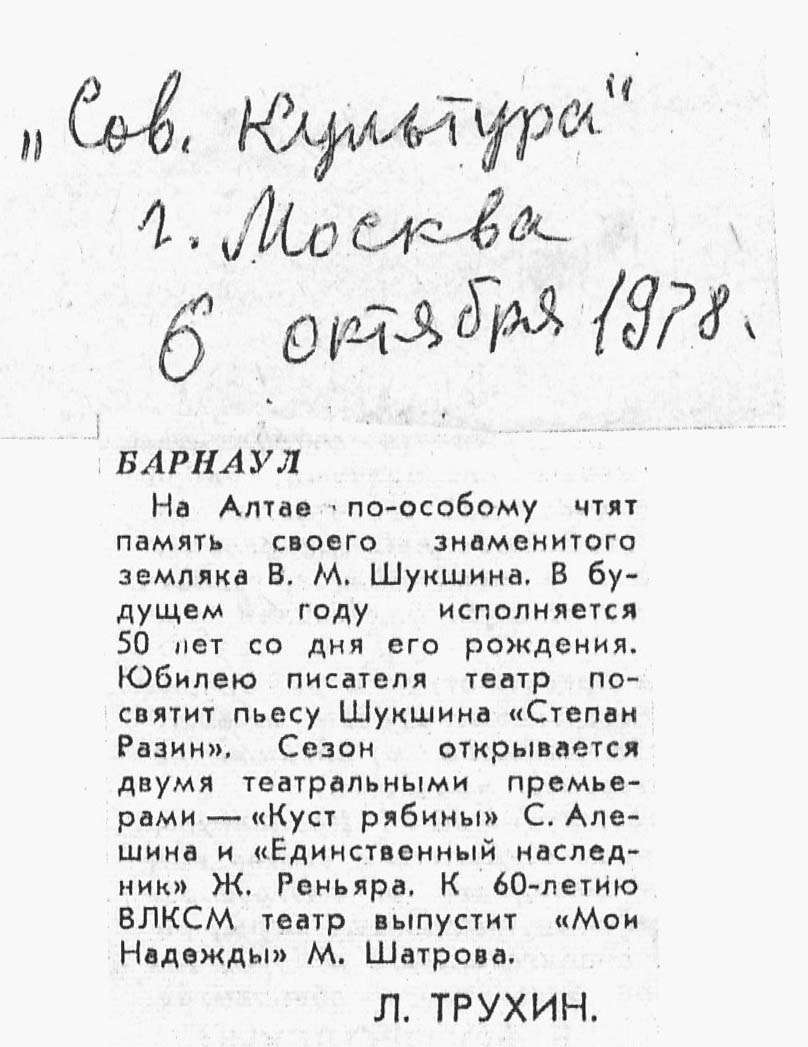 „Сов. Культура"
г. Москва
6 октября 1978.
БАРНАУЛ
На Алтае по-особому чтят
память своего знаменитого
земляка В. М. Шукшина. В бу-
дущем году исполняется
50 лет со дня его рождения.
Юбилею писателя театр по-
святит пьесу Шукшина «Степан
Разин». Сезон открывается
двумя театральными премье-
рами — «Куст рябины» С. Але-
шина и «Единственный наслед-
ник» Ж. Реньяра. К 60-летию
ВЛКСМ театр выпустит «Мои
Надежды» М. Шатрова.
Л. ТРУХИН.